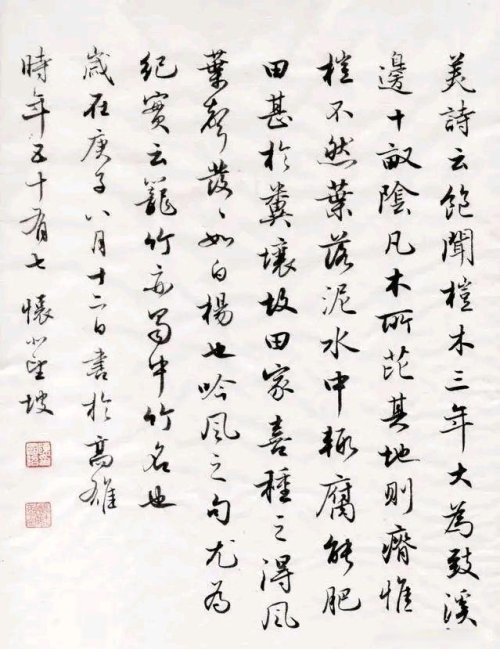 美詩云飽聞榿木三年大為致溪
邊十畝陰凡木所芘其地則瘠惟
榿不然葉落泥水中輒腐能肥
田甚於糞壤故田家喜種之得風
葉聲發々如白楊也吟風之句尤為
紀實云籠竹亦蜀中竹名也
歲在庚子八月十二日書於高雄
時年五十有七 懷坡